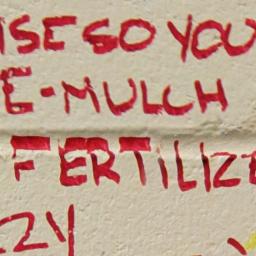 ISE SO YOU
E-MULCH
FERTILIZE
ZZY